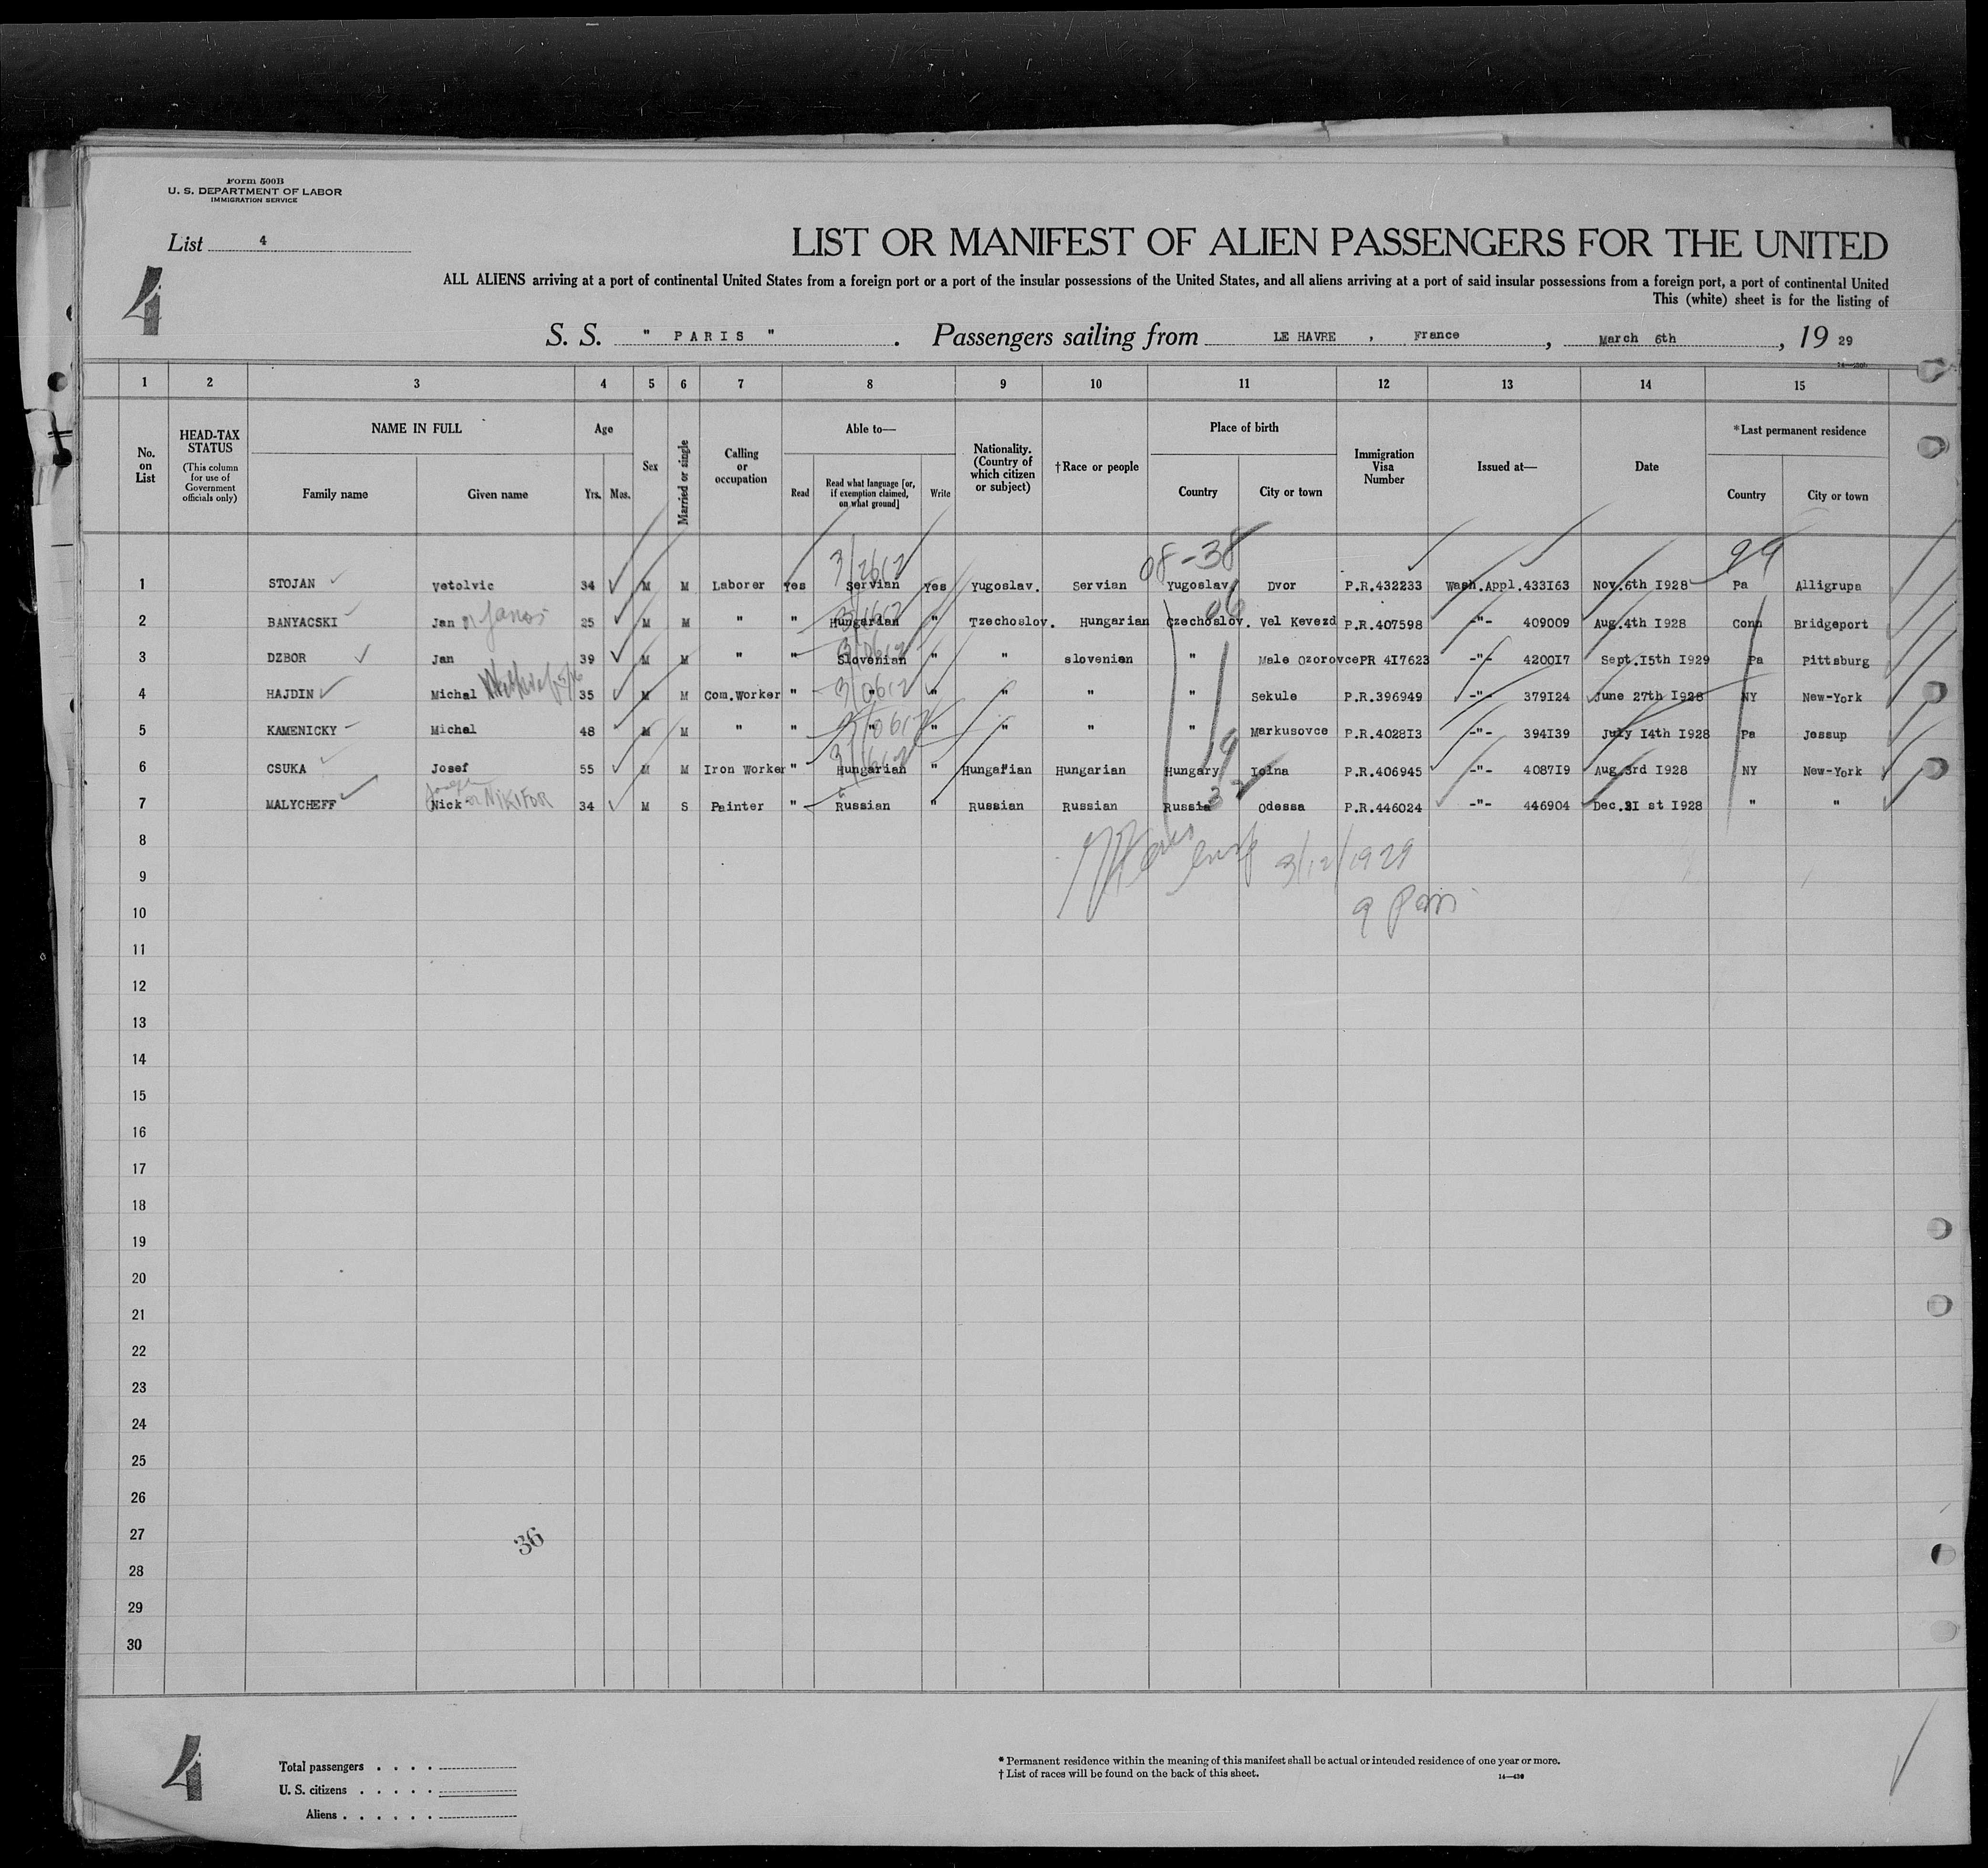 Form 500B
U. S. DEPARTMENT OF LABOR
IMMIGRATION SERVICE
List 4
4
LIST OR MANIFEST OF ALIEN PASSENGERS FOR THE UNITED
ALL ALIENS arriving at a port of continental United States from a foreign port or a port of the insular possessions of the United States, and all aliens arriving at a port of said insular possessions from a foreign port, a port of continental United
This (white) sheet is for the listing of
S. S. " PARIS " . Passengers sailing from LE HAVRE , France , March 6th , 19 29
1 2 3 4 5 6 7 8 9 10 11 12 13 14 15
No. on List
HEAD-TAX STATUS (This column for use of Government officials only)
NAME IN FULL
Family name Given name
Age
Yrs. Mos.
Sex
Married or single
Calling or occupation
Able to—
Read Read what language [or, if exemption claimed, on what ground] Write
Nationality. (Country of which citizen or subject)
†Race or people
Place of birth
Country City or town
Immigration Visa Number
Issued at—
Date
*Last permanent residence
Country City or town
08-38 99
1 STOJAN Vetolvic 34 M M Laborer yes Servian yes Yugoslav. Servian Yugoslav. Dvor P.R.432233 Wash.Appl.433I63 Nov.6th I928 Pa Alligrupa
2 BANYACSKI Jan or Janos 25 M M " " Hungarian " Tzechoslov. Hungarian Czechoslov. Vel Kevezd P.R.407598 -"- 409009 Aug.4th I928 Conn Bridgeport
3 DZBOR Jan 39 M M " " Slovenian " " slovenian " Male Ozorovce PR 4I7623 -"- 4200I7 Sept.I5th I929 Pa Pittsburg
4 HAJDIN Michal 35 M M Com.Worker " " " " " " Sekule P.R.396949 -"- 379I24 June 27th I928 NY New-York
5 KAMENICKY Michal 48 M M " " " " " " " Markusovce P.R.4028I3 -"- 394I39 July I4th I928 Pa Jessup
6 CSUKA Josef 55 M M Iron Worker " Hungarian " Hungarian Hungarian Hungary Iolna P.R.406945 -"- 4087I9 Aug.3rd I928 NY New-York
Joseph
7 MALYCHEFF Nick or NIKIFOR 34 M S Painter " Russian " Russian Russian Russia Odessa P.R.446024 -"- 446904 Dec.2I st I928 " "
8
3/12/1929
9
10
11
12
13
14
15
16
17
18
19
20
21
22
23
24
25
26
27
36
28
29
30
4
Total passengers . . . .
U. S. citizens . . . . .
Aliens . . . . . .
* Permanent residence within the meaning of this manifest shall be actual or intended residence of one year or more.
† List of races will be found on the back of this sheet.
14—430